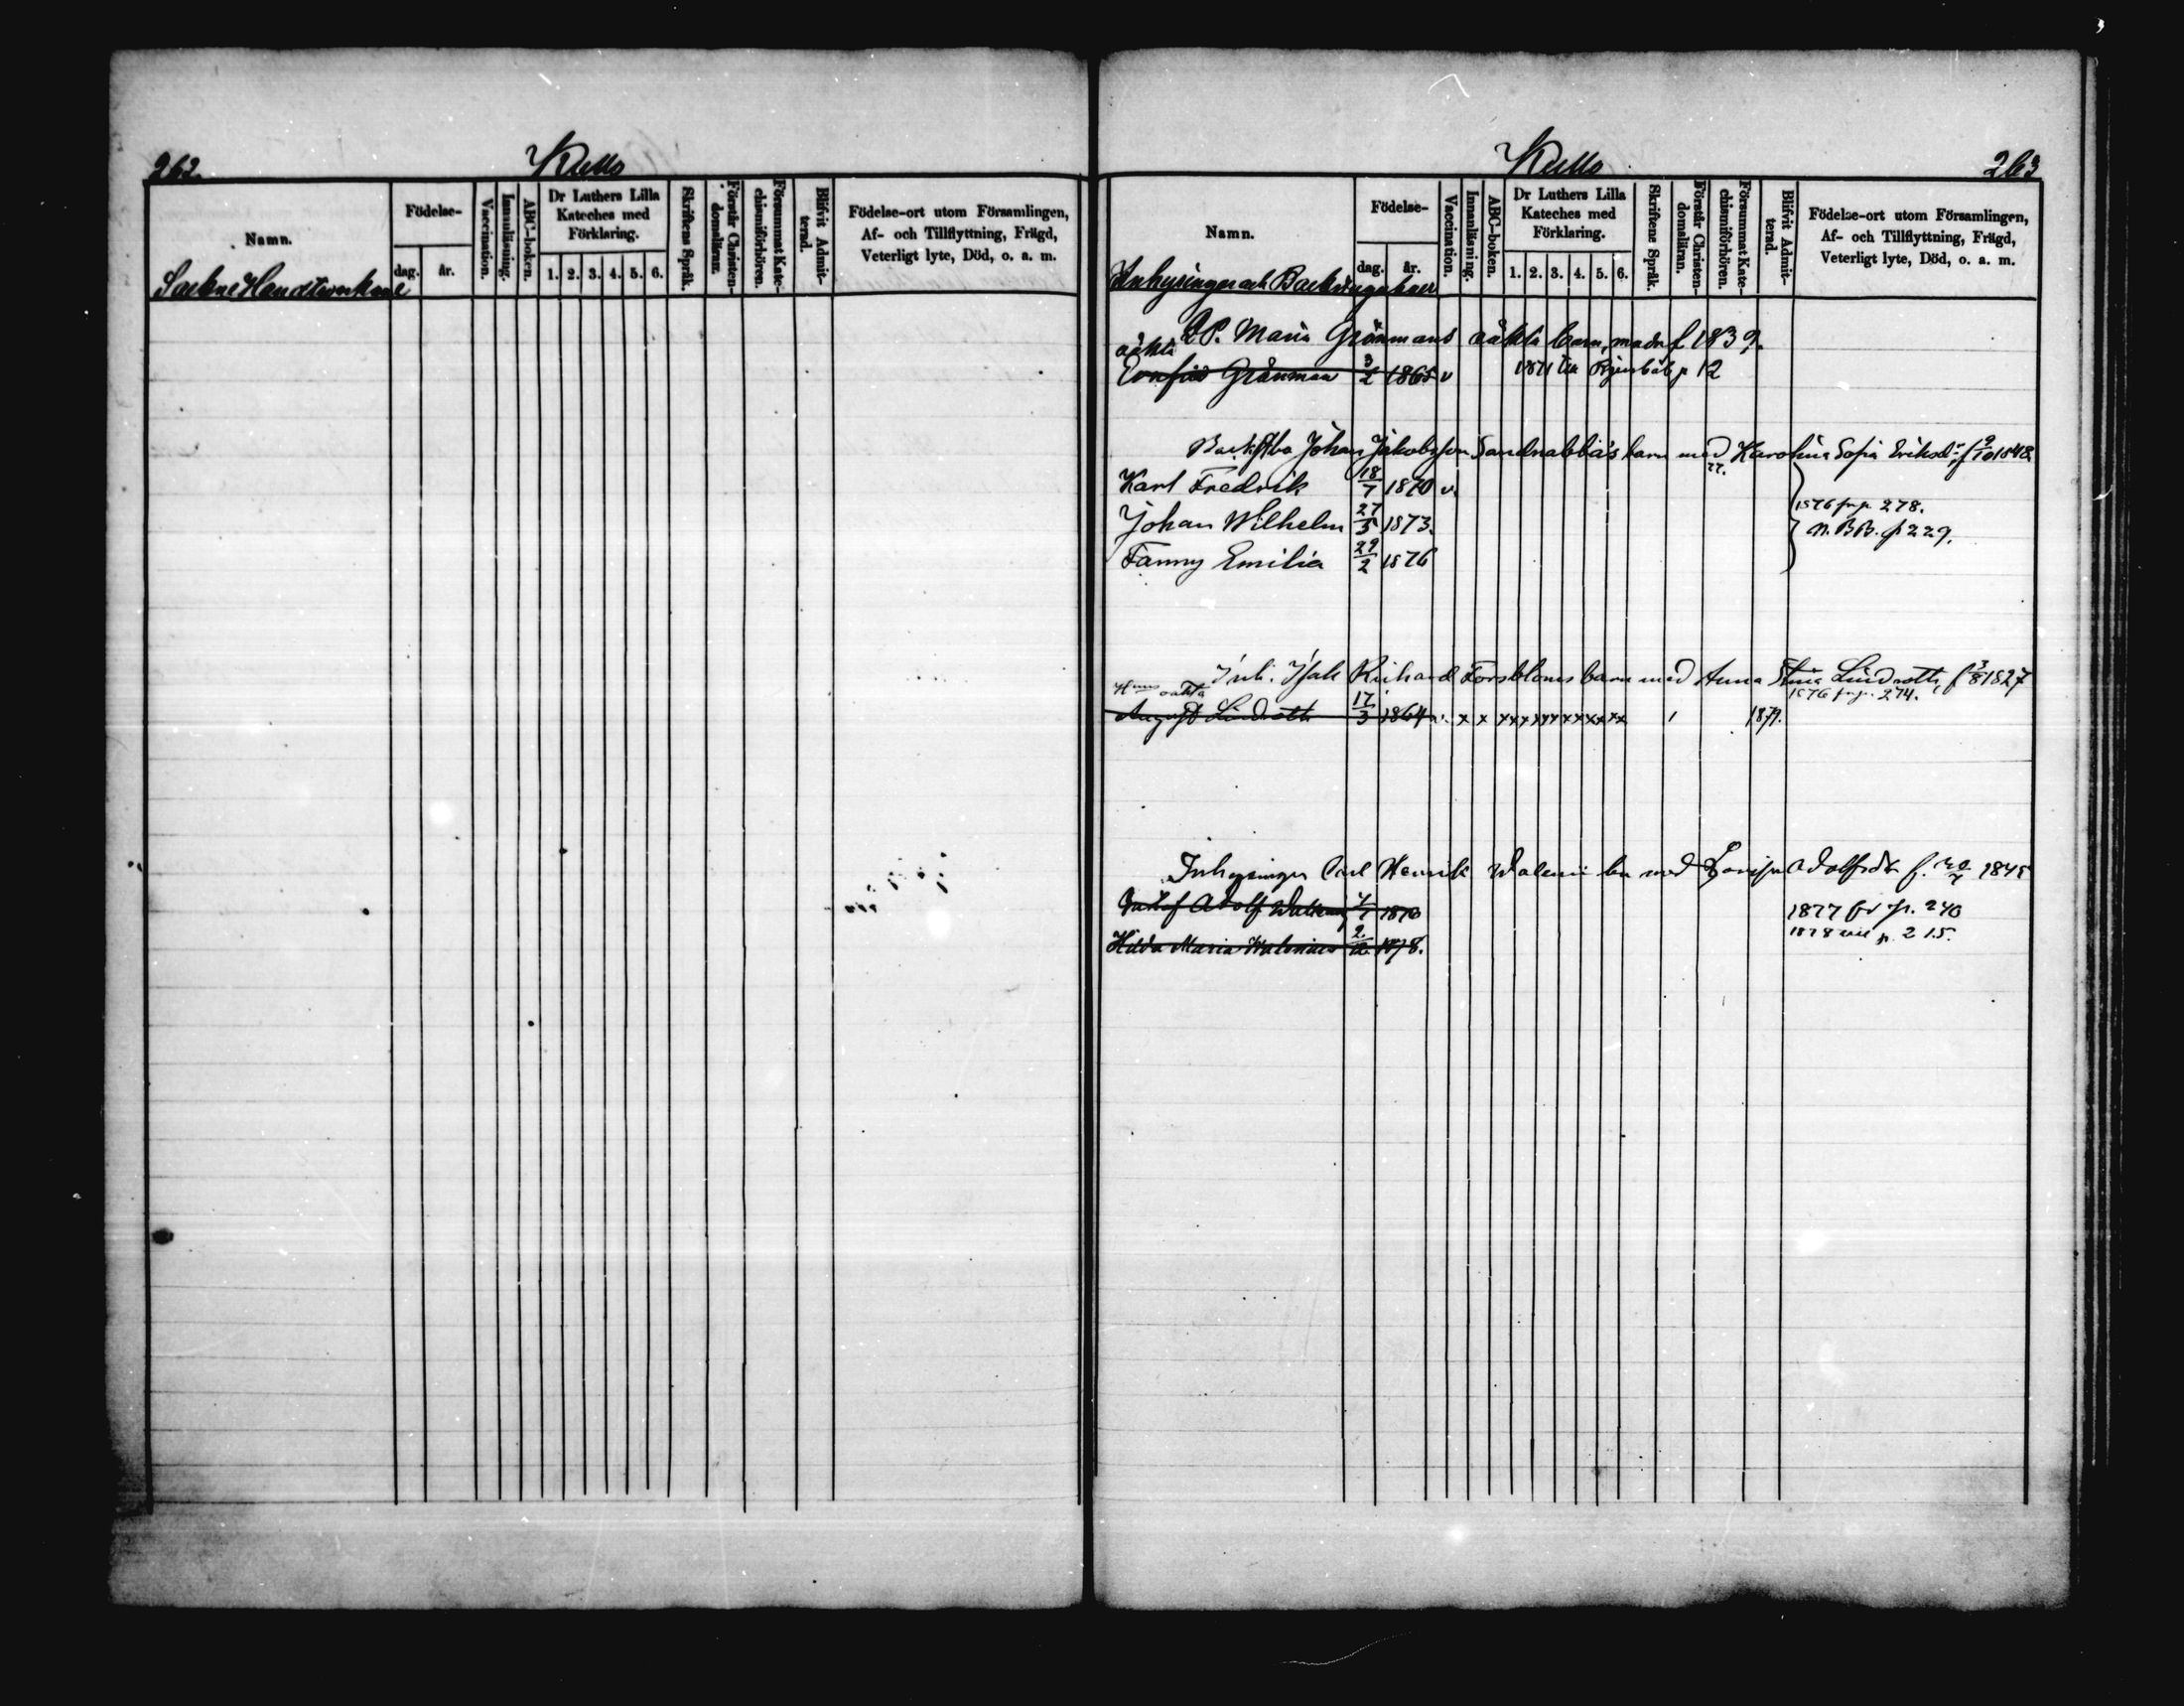 262.
Kullo
Namn.
Födelse-
dag.
år.
Vaccination.
Innanläsning.
ABC-boken.
Dr Luthers Lilla
Kateches med
Förklaring.
1. 2. 3. 4. 5. 6.
Skriftens Språk.
Förstår Christen-
domsläran.
Försummat Kate-
chismiförhören.
Blifvit Admit-
terad.
Födelse-ort utom Församlingen,
Af- och Tillflyttning, Frägd,
Veterligt lyte, Död, o. a. m.
Sockne Handtverkare
Kullo
263
Namn.
Födelse-
dag.
år.
Vaccination.
Innanläsning.
ABC-boken.
Dr Luthers Lilla
Kateches med
Förklaring.
1. 2. 3. 4. 5. 6.
Skriftens Språk.
Förstår Christen-
domsläran.
Försummat Kate-
chismiförhören.
Blifvit Admit-
terad.
Födelse-ort utom Församlingen,
Af- och Tillflyttning, Frägd,
Veterligt lyte, Död, o. a. m.
Inhysingar och Backstuguboer
Maria Grönmans oäkta barn, modr f 1839.
oäkta
Grönman 3/2 1865 v 1871 till p 12
Johan Jakobsson Sandnabba's barn med Karolina Sofia Eriksd: f 9/10 1848.
Karl Fredrik 18/7 1870 v.
Johan Wilhelm 27/5 1873. 1876 fr p. 278.
N. BB. p 229.
Fanny Emilia 29/2 1876
Inh. Isak Richard Forsbloms barn med Anna Stina Lindroth, f 3/8 1827
oäkta 1876 fr p. 274.
August Lindroth 17/3 1864 v. x x xxxxxxxxxxxx 1879.
Inhysingen Carl Henrik Walenii bn med Lovisa Adolfsdr f. 1845
Gustaf Adolf Walenius 1877 fr p. 240
Hilda Maria Walenius 2/12 1878. 1878 till p. 215.